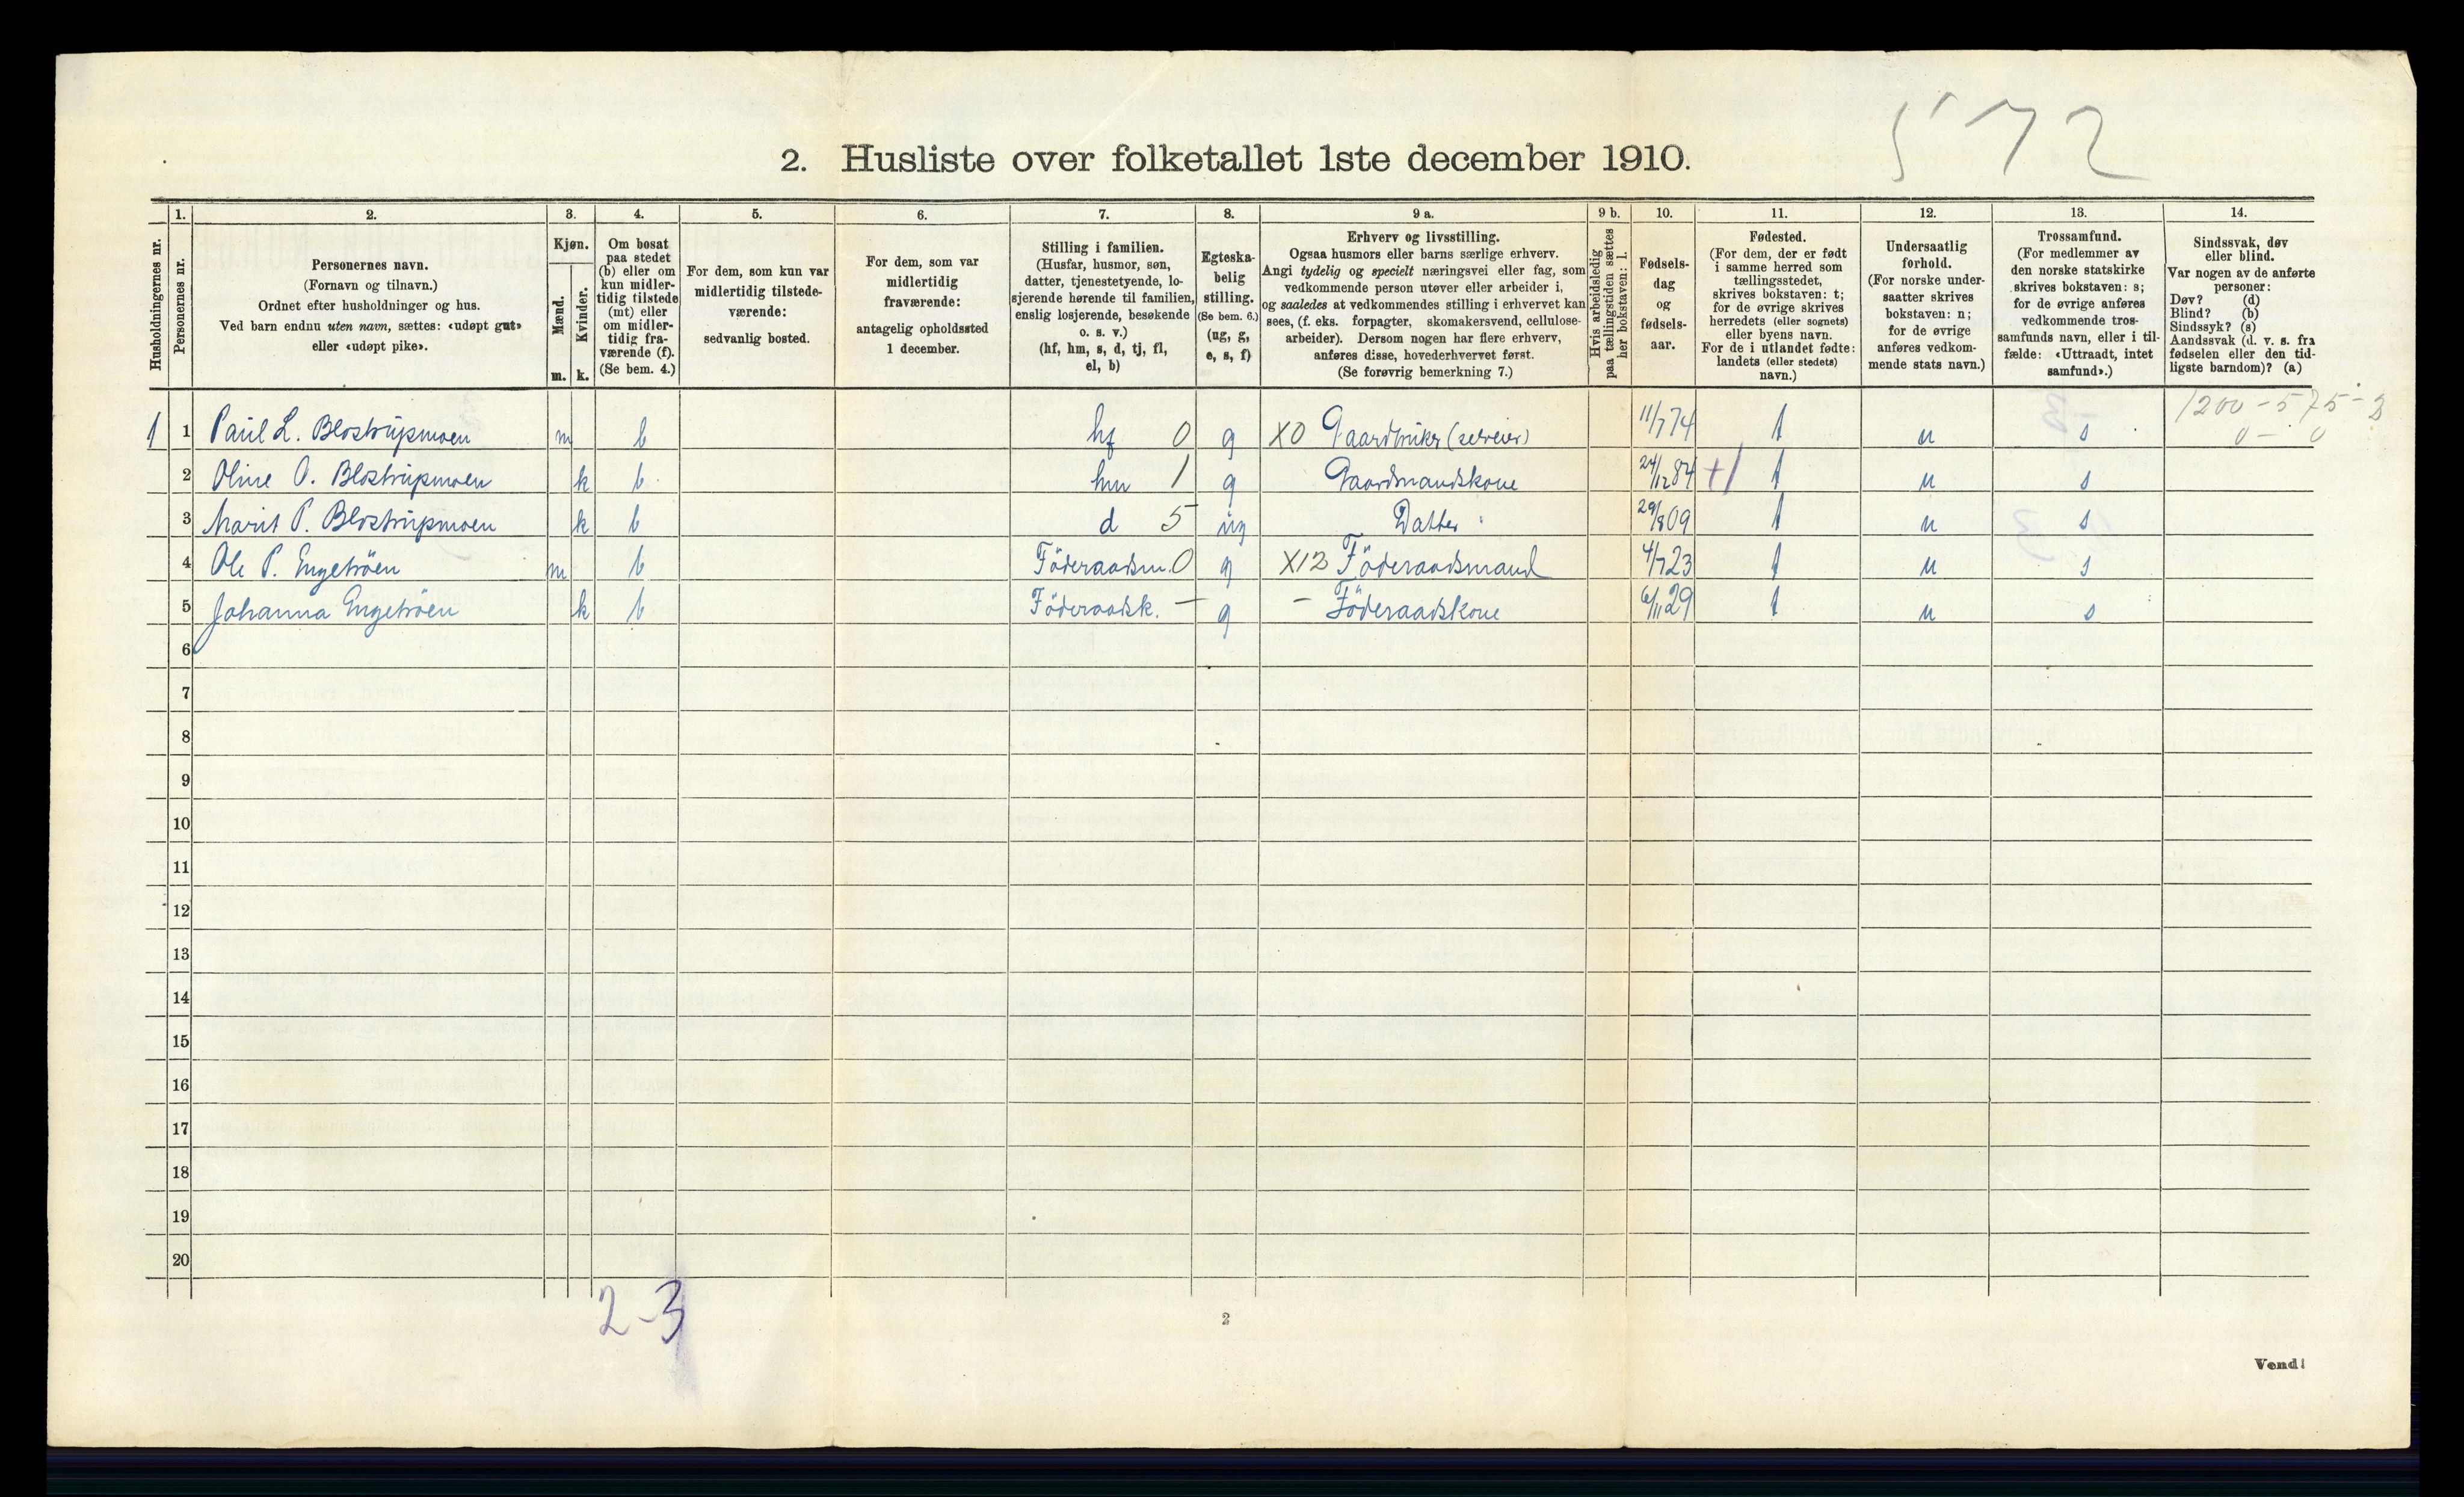 572
2. Husliste over folketallet 1ste december 1910.
1. 2. 3. 4. 5. 6. 7. 8. 9 a. 9 b. 10. 11. 12. 13. 14.
Husholdningernes nr.
Personernes nr.
Personernes navn.
(Fornavn og tilnavn.)
Ordnet efter husholdninger og hus.
Ved barn endnu uten navn, sættes: «udøpt gut»
eller «udøpt pike».
Kjøn.
Mænd.
Kvinder.
m. k.
Om bosat
paa stedet
(b) eller om
kun midler-
tidig tilstede
(mt) eller
om midler-
tidig fra-
værende (f).
(Se bem. 4.)
For dem, som kun var
midlertidig tilstede-
værende:
sedvanlig bosted.
For dem, som var
midlertidig
fraværende:
antagelig opholdssted
1 december.
Stilling i familien.
(Husfar, husmor, søn,
datter, tjenestetyende, lo-
sjerende hørende til familien,
enslig losjerende, besøkende
o. s. v.)
(hf, hm, s, d, tj, fl,
el, b)
Egteska-
belig
stilling.
(Se bem. 6.)
(ug, g,
e, s, f)
Erhverv og livsstilling.
Ogsaa husmors eller barns særlige erhverv.
Angi tydelig og specielt næringsvei eller fag, som
vedkommende person utøver eller arbeider i,
og saaledes at vedkommendes stilling i erhvervet kan
sees, (f. eks. forpagter, skomakersvend, cellulose-
arbeider). Dersom nogen har flere erhverv,
anføres disse, hovederhvervet først.
(Se forøvrig bemerkning 7.)
Hvis arbeidsledig
paa tællingstiden sættes
her bokstaven: l.
Fødsels-
dag
og
fødsels-
aar.
Fødested.
(For dem, der er født
i samme herred som
tællingsstedet,
skrives bokstaven: t;
for de øvrige skrives
herredets (eller sognets)
eller byens navn.
For de i utlandet fødte:
landets (eller stedets)
navn.)
Undersaatlig
forhold.
(For norske under-
saatter skrives
bokstaven: n;
for de øvrige
anføres vedkom-
mende stats navn.)
Trossamfund.
(For medlemmer av
den norske statskirke
skrives bokstaven: s;
for de øvrige anføres
vedkommende tros-
samfunds navn, eller i til-
fælde: «Uttraadt, intet
samfund».)
Sindssvak, døv
eller blind.
Var nogen av de anførte
personer:
Døv? (d)
Blind? (b)
Sindssyk? (s)
Aandssvak (d. v. s. fra
fødselen eller den tid-
ligste barndom)? (a)
1200-575-2
0 - 0
1 1 Paul L. Blostrupmoen m b hf 0 g X0 Gaardbruker (selveier) 11/7 74 t n s
2 Oline O. Blostrupmoen k b hm 1 g Gaardmandskone 24/12 84 +1 t n s
3 Marit P. Blostrupmoen k b d 5 ug Datter 29/8 09 t n s
4 Ole P. Engetröen m b Föderaadsm. 0 g X12 Föderaadsmand 4/7 23 t n s
5 Johanna Engetröen k b Föderaadsk. - g - Föderaadskone 6/11 29 t n s
6
7
8
9
10
11
12
13
14
15
16
17
18
19
20
2-3
2
Vend!